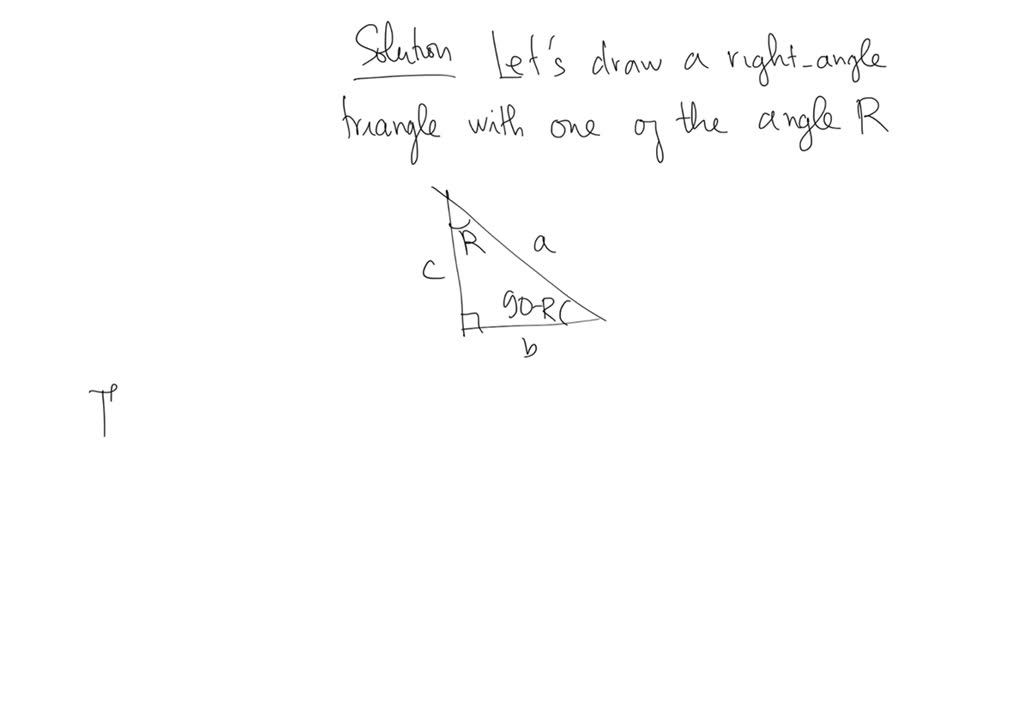 Solution Let's draw a right-angle
triangle with one of the angle R
R
a
c
90-R
b
T